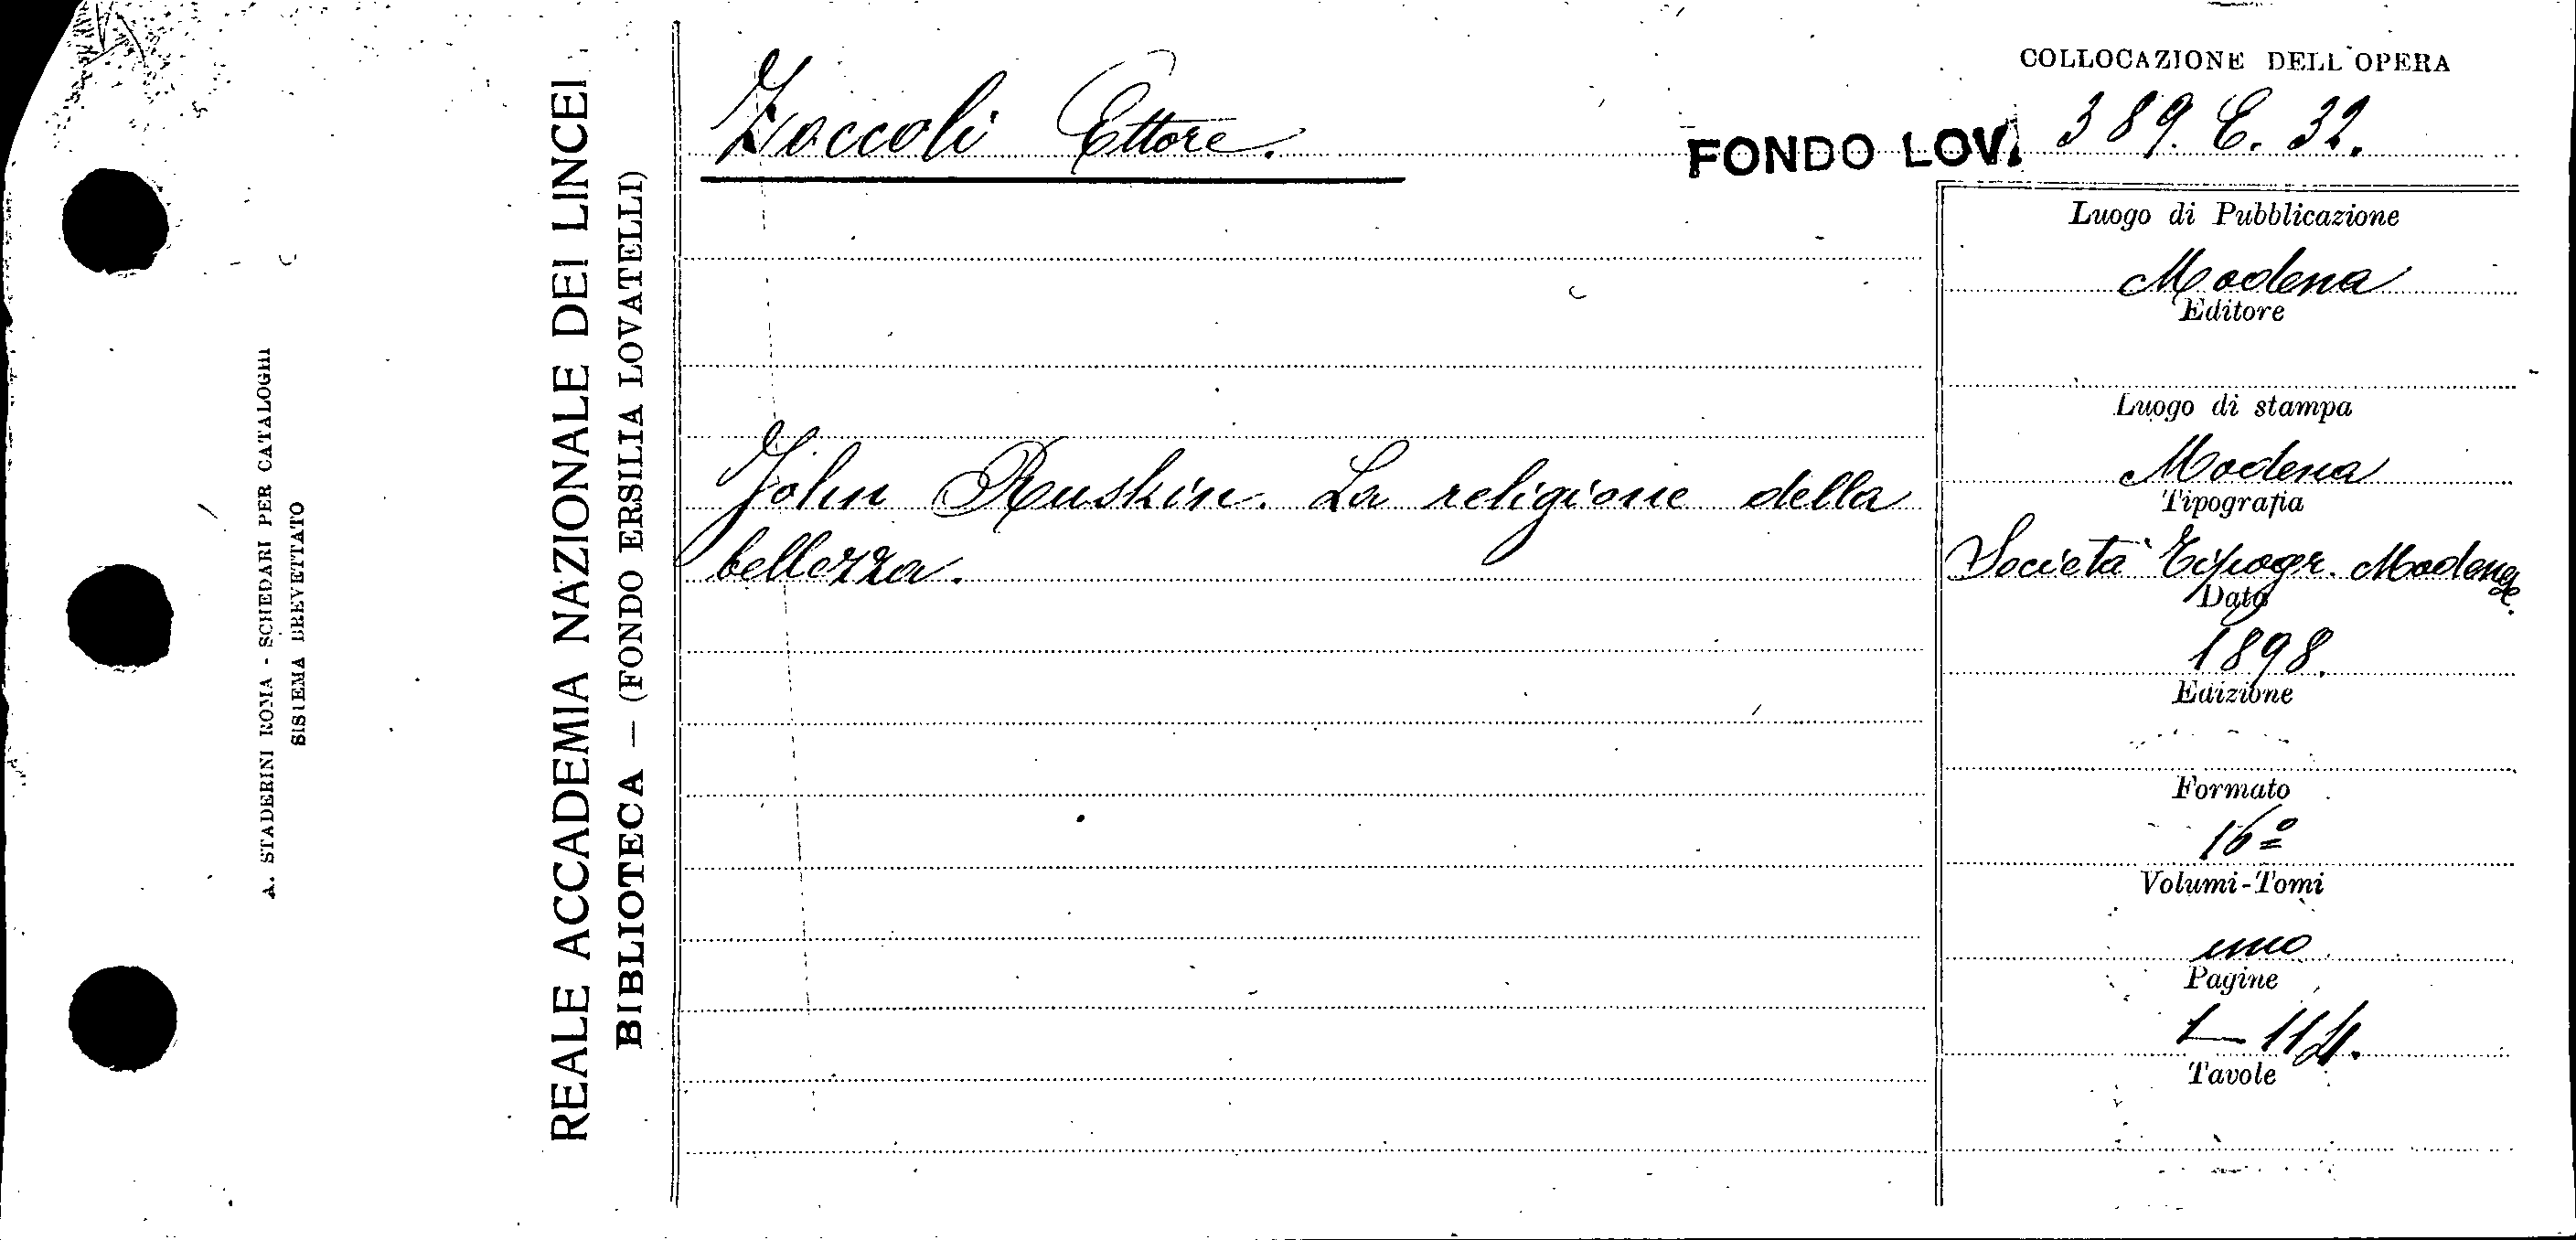 A. STADERINI ROMA - SCHEDARI PER CATALOGHI
SISTEMA BREVETTATO
REALE ACCADEMIA NAZIONALE DEI LINCEI
BIBLIOTECA — (FONDO ERSILIA LOVATELLI)
Zoccoli Ettore.
John Ruskin. La religione della
bellezza.
COLLOCAZIONE DELL'OPERA
FONDO LOV. 389. C. 32.
Luogo di Pubblicazione
Modena
Editore
Luogo di stampa
Modena
Tipografia
Società Tipogr. Modenese.
Data
1898.
Edizione
Formato
16º
Volumi-Tomi
uno
Pagine
1—114.
Tavole